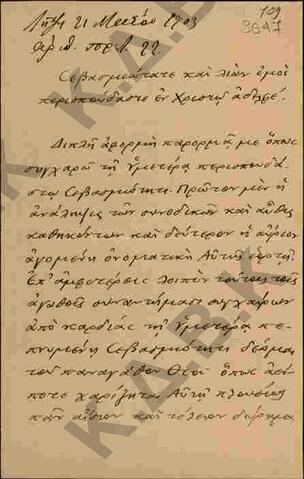 21 Μαρτίου 1903
109
3647
ἀριθ. πρωτ. 22
Σεβασμιώτατε καὶ λίαν ἐμοὶ
περισπούδαστε ἐν Χριστῷ ἀδελφέ.
Διπλῆ ἀφορμὴ παρορμᾷ με ὅπως
συγχαρῶ τῇ Ὑμετέρᾳ περισπουδά-
στῳ Σεβασμιότητι. Πρῶτον μὲν ἡ
ἀνάληψις τῶν συνοδικῶν καὶ αὖθις
καθηκόντων καὶ δεύτερον ἡ αὔριον
ἀγομένη ὀνομαστικὴ Αὐτῆς ἑορτή.
Ἐπ' ἀμφοτέροις λοιπὸν τούτοις τοῖς
ἀγαθοῖς συναντήμασι συγχαίρων
ἀπὸ καρδίας τῇ Ὑμετέρᾳ πε-
πνυμένῃ Σεβασμιότητι δέομαι
τοῦ παναγάθου Θεοῦ ὅπως ἀεί-
ποτε χαρίζηται Αὐτῇ πλουσίως
πᾶν αἴσιον καὶ τέλειον δώρημα